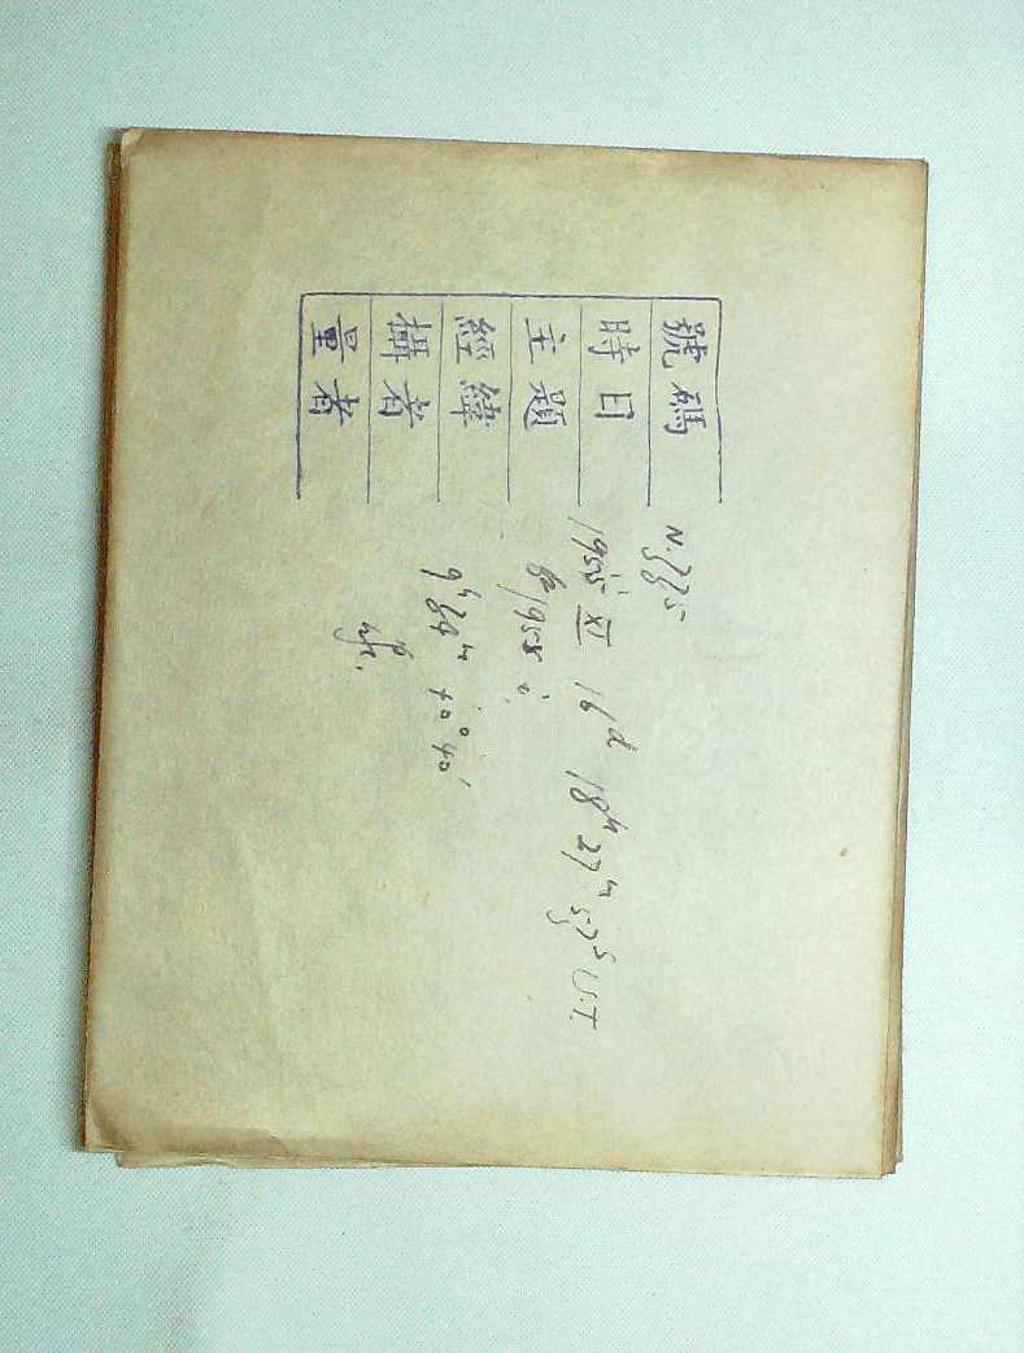 號碼 N. 3775
時日 1955 XI 16ᵈ 18ʰ 27ᵐ 57ˢ U.T.
主題 1955
經緯 9ʰ 39ᵐ +0° 40′
攝者
量者